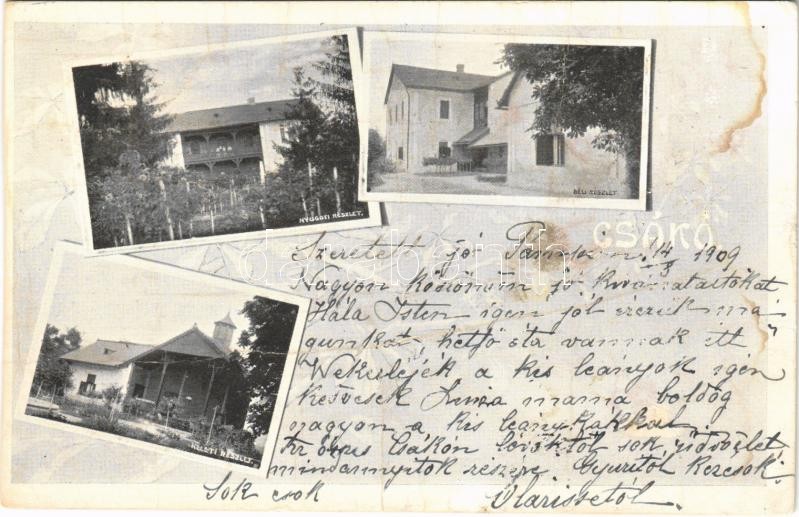 NYUGOTI RÉSZLET.
DÉLI RÉSZLET.
CSÁKÓ
KELETI RÉSZLET.
Szeretett jó 14/X 1909
Nagyon köszönöm jó kivánataitokat
Hála Isten igen jól érezük ma-
gunkat hetfő óta vannak itt
Wekerlejék a kis leányok igen
kedvesek mama boldog
nagyon a kis leanykákkal.
Az össes Csákón lévőktől sok üdvözlet
mindannyitok reszére Gyuritól kezcsok.
Sok csok